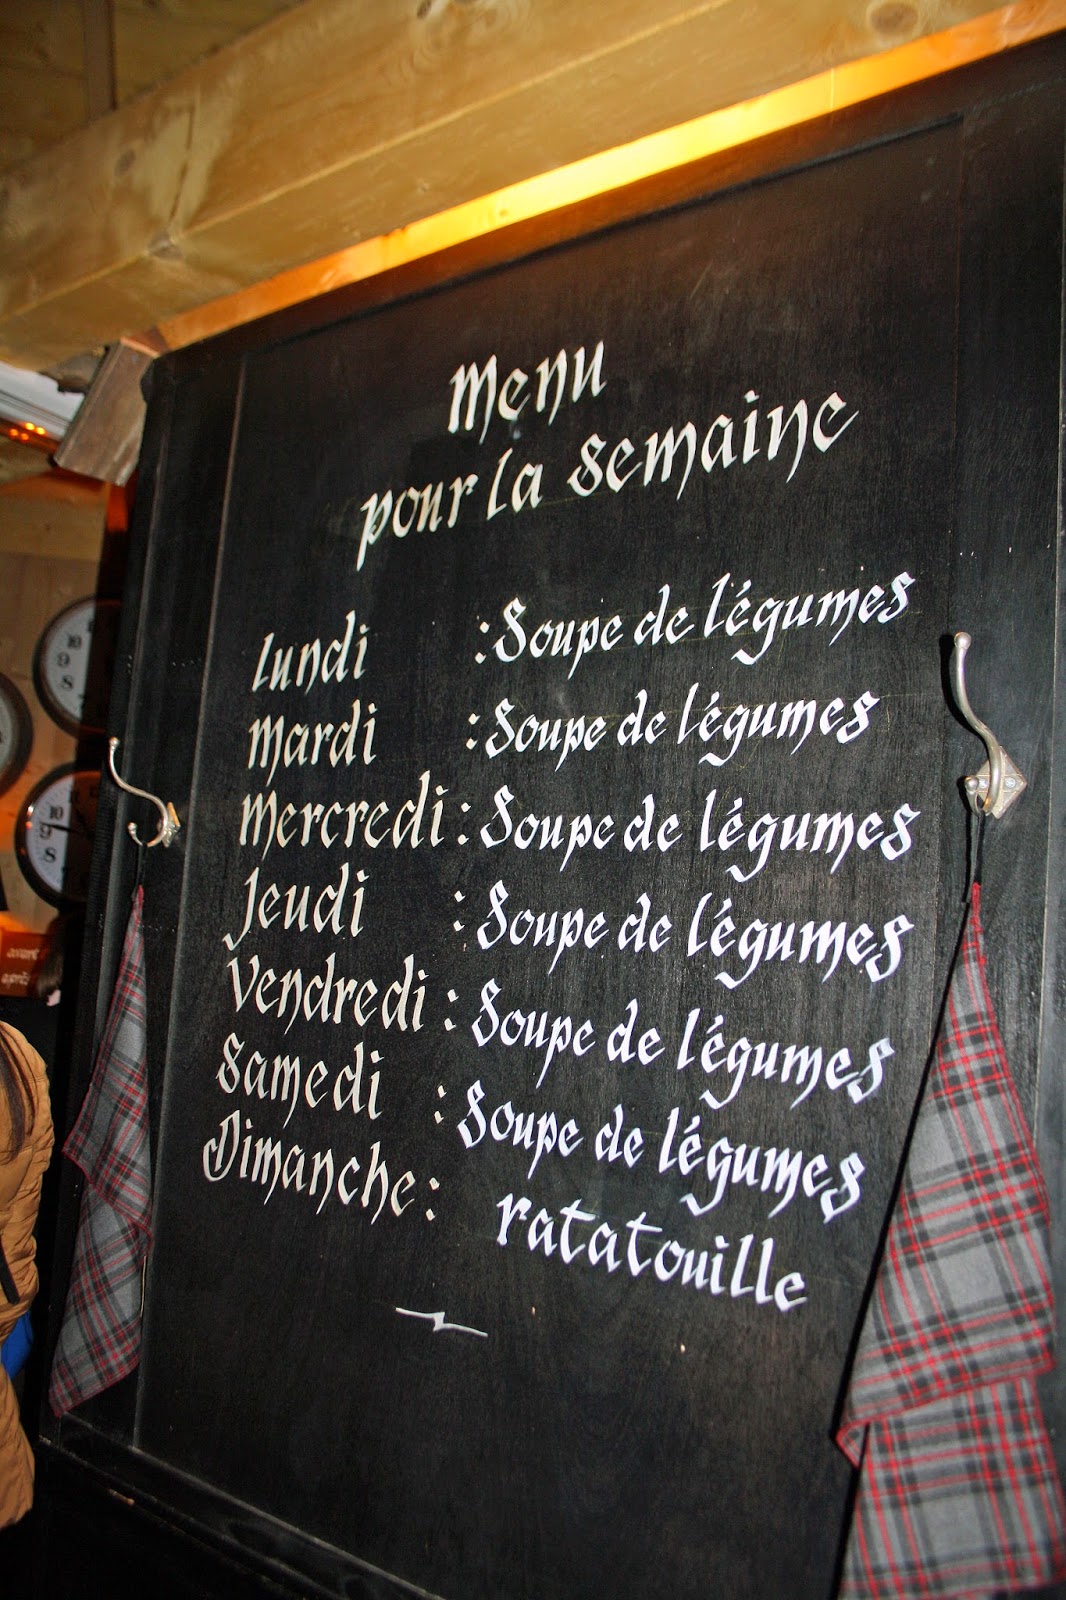 Menu
pour la semaine
lundi : Soupe de légumes
Mardi : Soupe de légumes
Mercredi : Soupe de légumes
Jeudi : Soupe de légumes
Vendredi : Soupe de légumes
Samedi : Soupe de légumes
Dimanche : ratatouille
10
9
8
10
9
8
avant
après